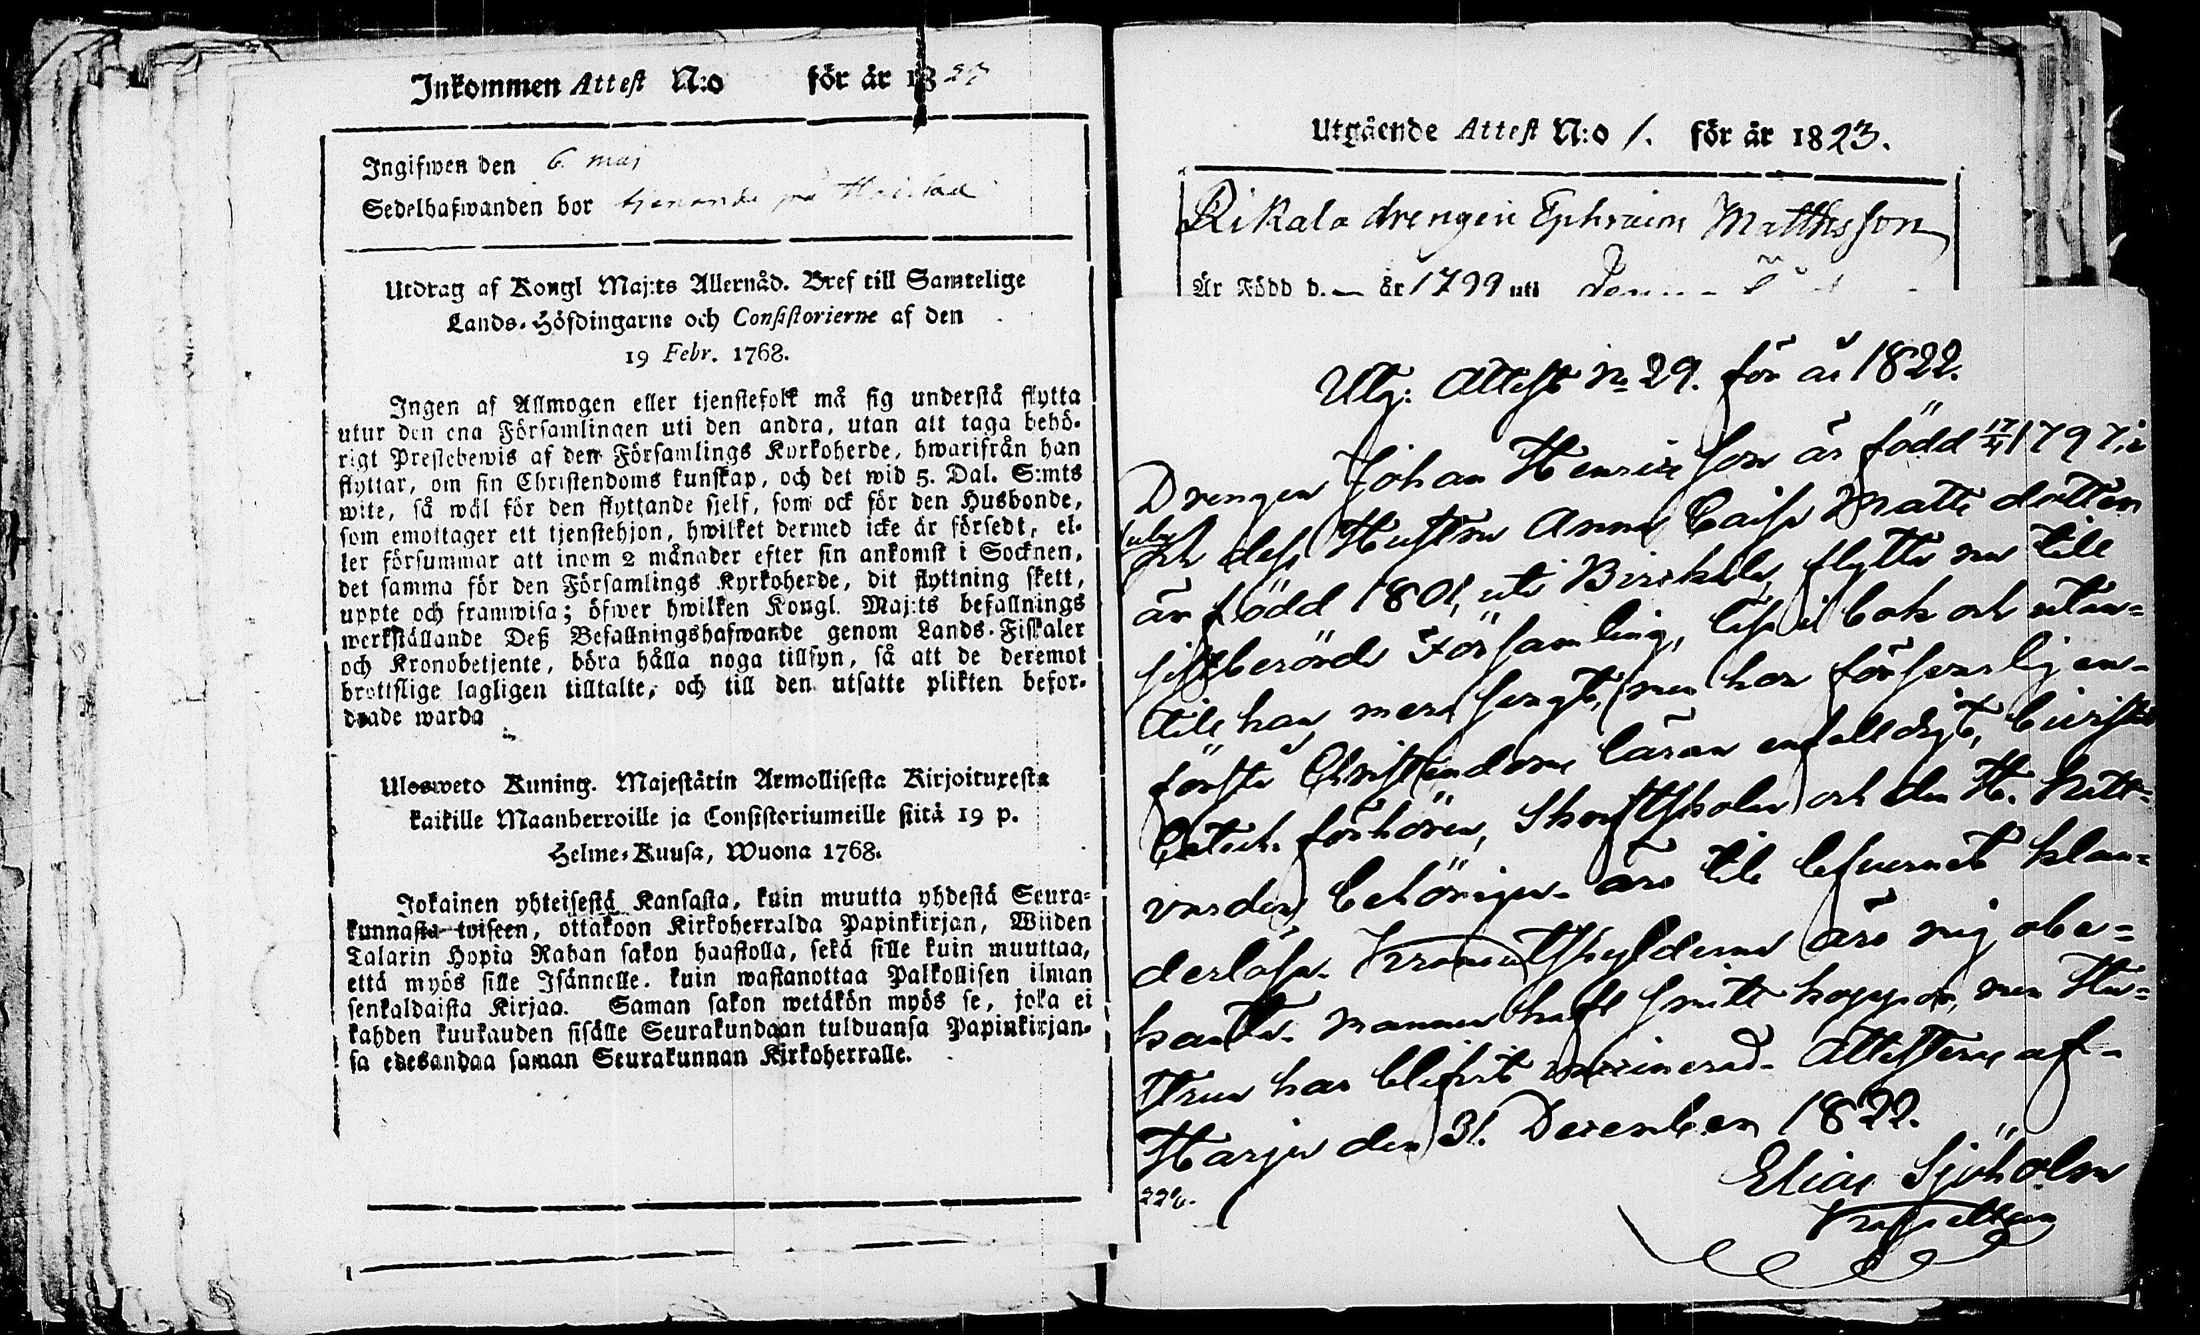 Inkommen Attest N:o för år 1823
Ingifwen den 6 maj
Sedelhafwanden bor tjenande på
Utdrag af Kongl Maj:ts Allernåd. Bref till Samtelige
Lands-Höfdingarne och Consistorierne af den
19 Febr. 1768.
Ingen af Allmogen eller tjenstefolk må sig understå flytta
utur den ena Församlingen uti den andra, utan att taga behö-
rigt Prestebewis af den Församlings Kyrkoherde, hwarifrån han
flyttar, om sin Christendoms kunskap, och det wid 5. Dal. S:mts
wite, så wäl för den flyttande sjelf, som ock för den Husbonde,
som emottager ett tjenstehjon, hwilket dermed icke är försedt, el-
ler försummar att inom 2 månader efter sin ankomst i Socknen,
det samma för den Församlings Kyrkoherde, dit flyttning skett,
uppte och framwisa; öfwer hwilken Kongl. Maj:ts befallnings
werkställande Deß Befallningshafwande genom Lands-Fiskaler
och Kronobetjente, böra hålla noga tillsyn, så att de deremot
brottslige lagligen tilltalte, och till den utsatte plikten befor-
drade warda
Ulosweto Kuning. Majestätin Armollisesta Kirjoituxesta
kaikille Maanherroille ja Consistoriumeille siitä 19 p.
Helme-Kuusa, Wuona 1768.
Jokainen yhteisestä Kansasta, kuin muutta yhdestä Seura-
kunnasta toiseen, ottakoon Kirkoherralda Papinkirjan, Wiiden
Talarin Hopia Rahan sakon haastolla, sekä sille kuin muuttaa,
että myös sille Isännelle, kuin wastanottaa Palkollisen ilman
senkaldaista Kirjaa. Saman sakon wetäkön myös se, joka ei
kahden kuukauden sisälle Seurakundaan tulduansa Papinkirjan-
sa edesandaa saman Seurakunnan Kirkoherralle.
Utgående Attest N:o 1. för år 1823.
Rikala drengen Ephraim Mattsson
Är Född d. — år 1799 uti
Utg: Attest No 29. för år 1822.
Drengen Johan Henricsson är född 17/4 1797, i
och dess Hustru Anna Caisa Matts dotter
är född 1801, uti Birkala, flytta nu till
sistberörde Församling, läsa i bok och utan-
till han mera svagt, men hon försvarligen-
förstå Christendoms läran enfalldigt, bevista
Catech. förhören, Skriftskolan och den H. Natt-
varden behörigen. äro till lefvernet klan-
derlösa. Kronoutskylderna äro mig obe-
kanta. Mannen haft smitt koppor, men Hu-
strun har blifvit vaccinerad. Attesteras af-
Harju den 31. December 1822.
Elias Sjöholm